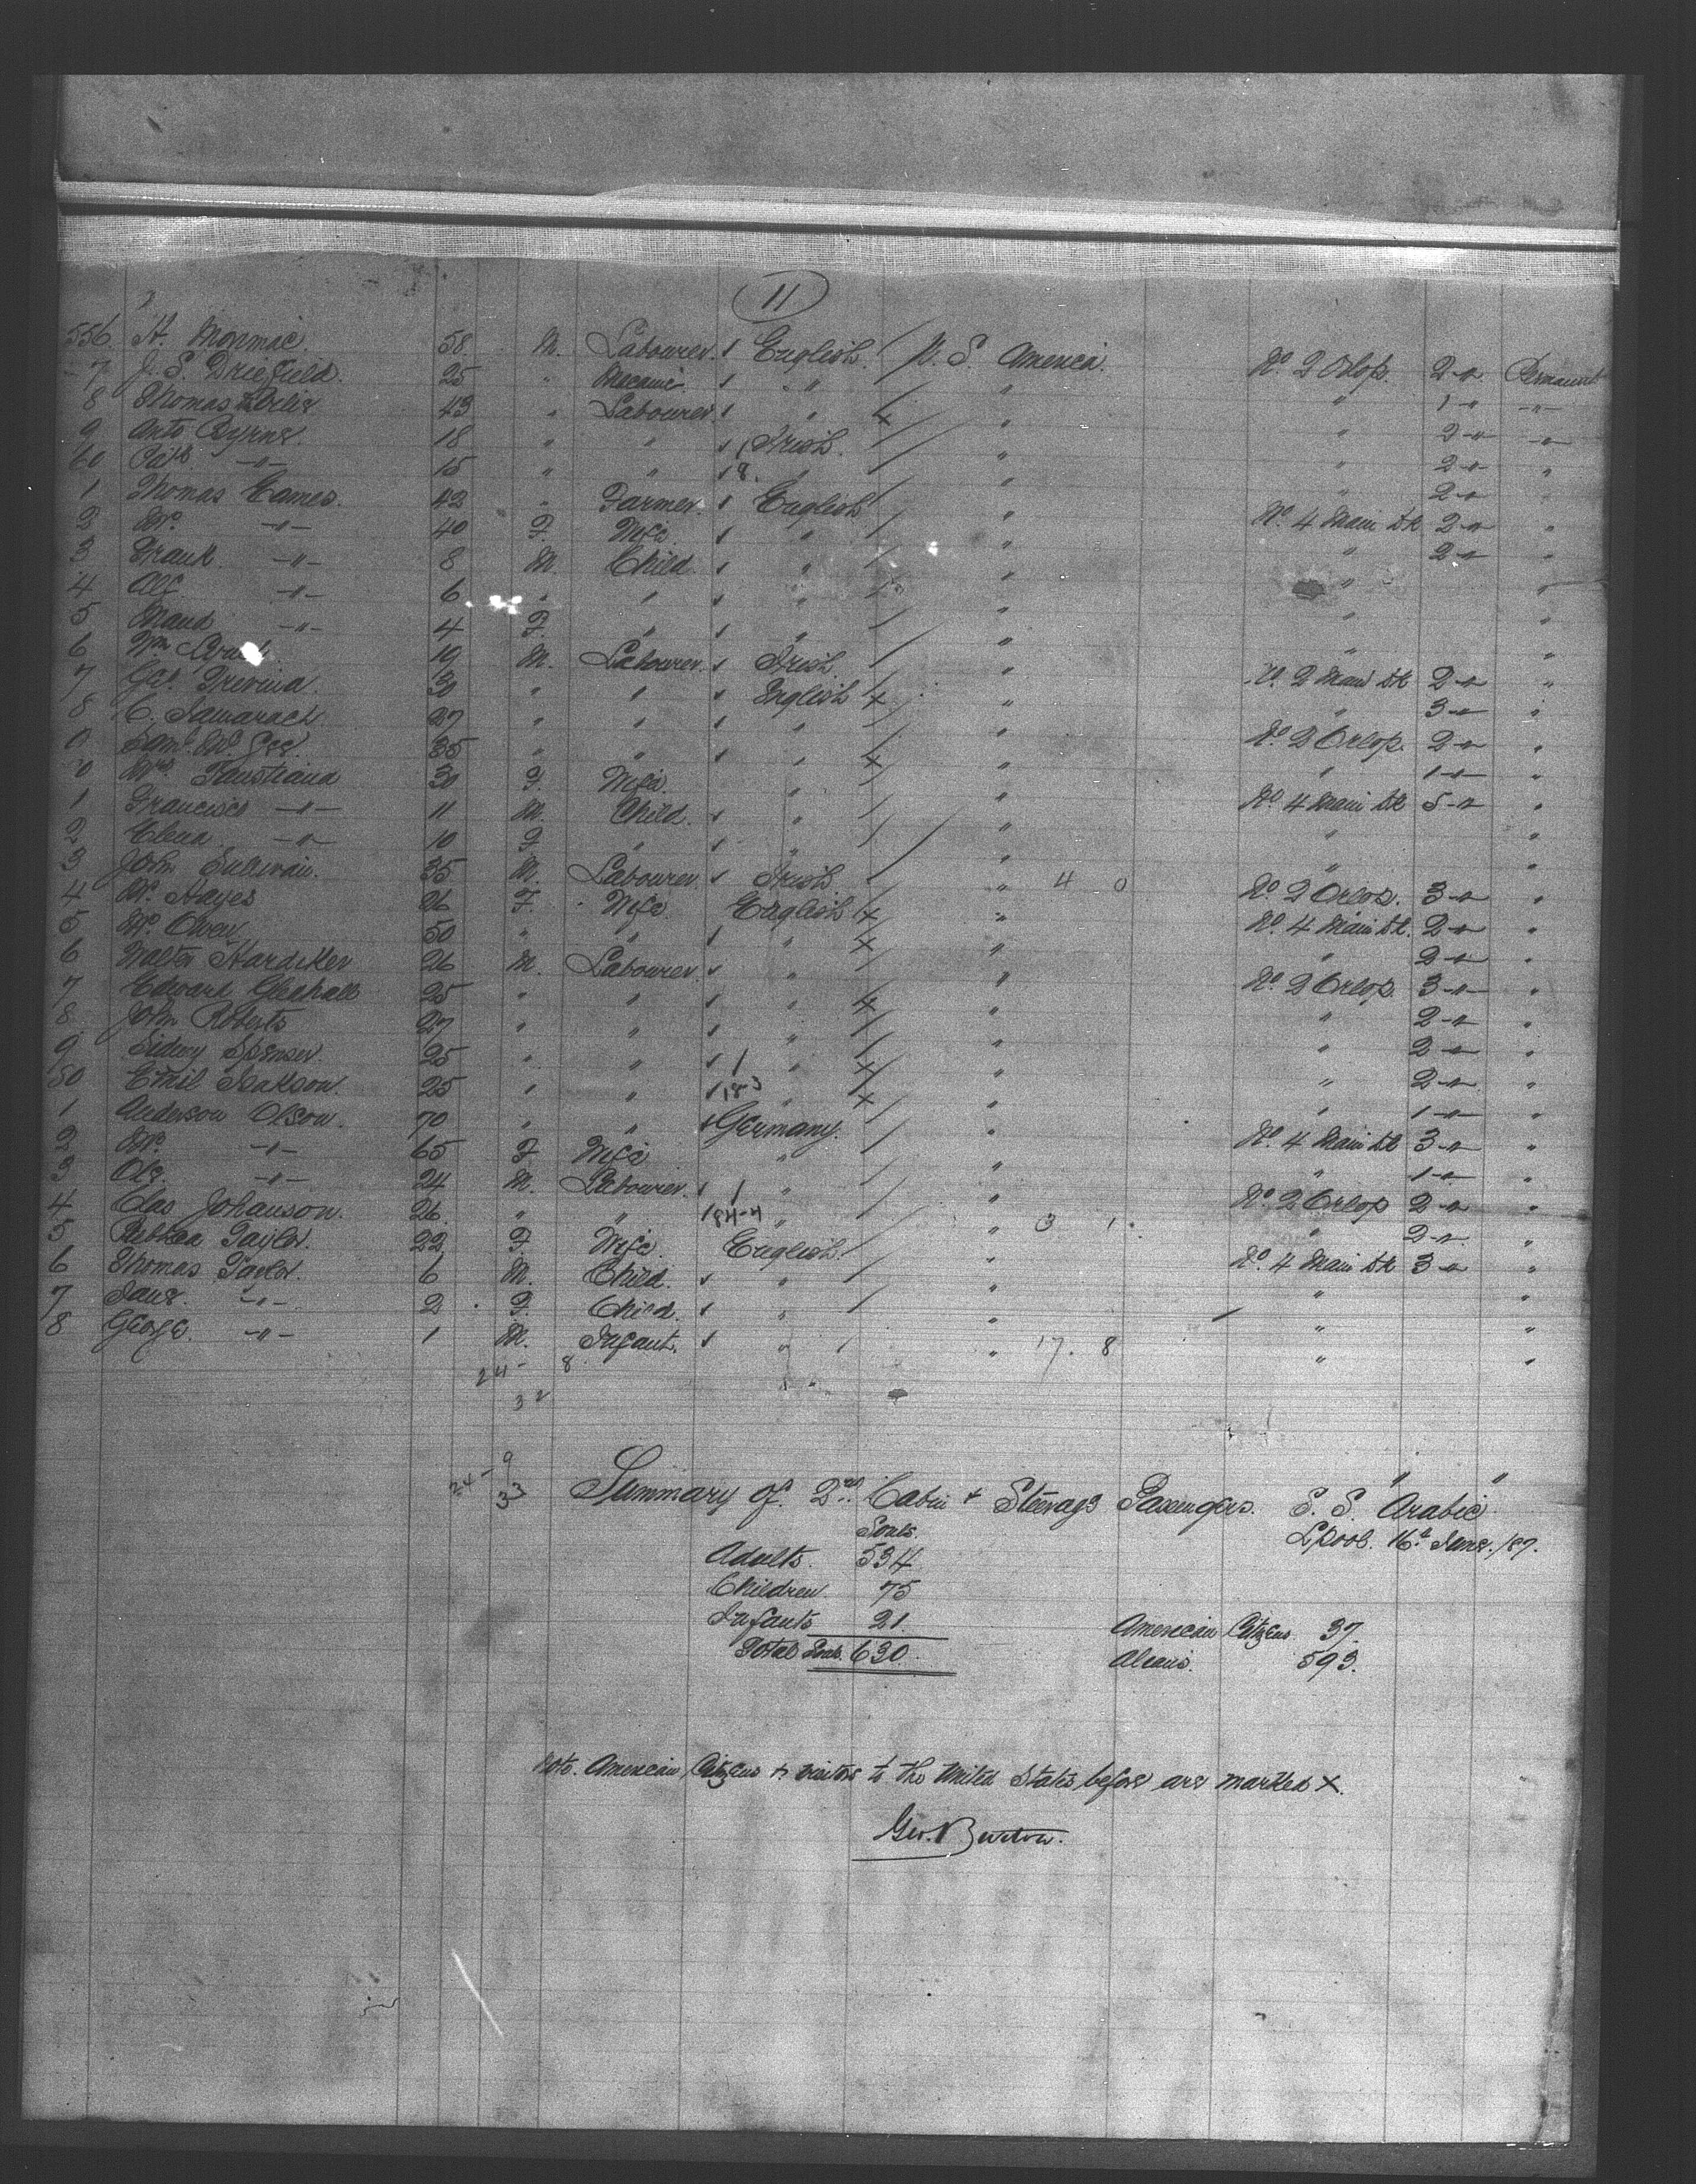 11
556 H. Mormac. 58. M. Labourer. English. U. S. America. No. 2 Orlop. 2 -"- Permanent
7 J. S. Driefield. 25 " Mecanic " " " 1 -"- -"-
8 Thomas 43 " Labourer. " X " " 2 -"- -"-
9 Anto Byrne. 18 " " Irish. " " 2 -"- "
60 Patk. -"- 15 " " " " " 2 -"-
1 Thomas Eames. 42 " Farmer. English " No. 4 Main Dk 2 -"- "
2 Mrs. -"- 40 F. Wife. " " " 2 -"- "
3 Frank -"- 8 M. Child. " " " "
4 Alf. -"- 6 " " " " " "
5 Maud -"- 4 F. " " " " "
6 Wm 19 M. Labourer. Irish. " No. 2 Main Dk 2 -"- "
7 Geo. Trevina. 30 " " English X " " 3 -"- "
8 C. 27 " " " " No. 2 Orlop. 2 -"- "
9 Saml. Mc. Gee. 35 " " " X " " 1 -"- "
0 Mrs. Faustiana 30 F. Wife. " " No. 4 Main Dk 5 -"- "
1 Francisco -"- 11 M. Child. " " " "
2 Elena. -"- 10 F. " " " " "
3 John Sullivan. 35 M. Labourer. Irish. " 4 0 No. 2 Orlop. 3 -"- "
4 Mrs. Hayes 26 F. Wife. English X " No. 4 Main Dk. 2 -"- "
5 Mrs. Owen 50 " " " X " " 2 -"- "
6 Walter Hardeker 26 M. Labourer. " " No. 2 Orlop. 3 -"- "
7 Edward 25 " " " X " " 2 -"- "
8 John Roberts 27 " " " " " 2 -"- "
9 Sidney Spenser. 25 " " " X " " 2 -"- "
80 Emil Isakson. 25 " " " X " " 1 -"- "
1 Anderson Olson. 70 " " Germany. " No. 4 Main Dk 3 -"- "
2 Mrs. -"- 65 F Wife " " " 1 -"- "
3 Ole. -"- 24 M. Labourer. " " No. 2 Orlop 2 -"- "
4 Clas Johanson. 26. " " " " 3 1 " 2 -"- "
5 Rebbca Taylor. 22 F. Wife. English. " No. 4 Main Dk 3 -"- "
6 Thomas Taylor. 6 M. Child. " " " "
7 Jane. -"- 2 F. Child. " " " "
8 George. -"- 1 M. Infant. " " 17. 8 " "
24 - 8
32
24 - 9
33
Summary of 2nd. Cabin + Steerage Passengers. S. S. "Arabic"
Souls. Lpool. 16th June. /87.
Adults. 534
Children 75
Infants 21. American Citizens 37.
Total Souls. 630. Aleans. 593.
Note. American Citizens & visitors to the United States before are marked X.
Geo. Burton.